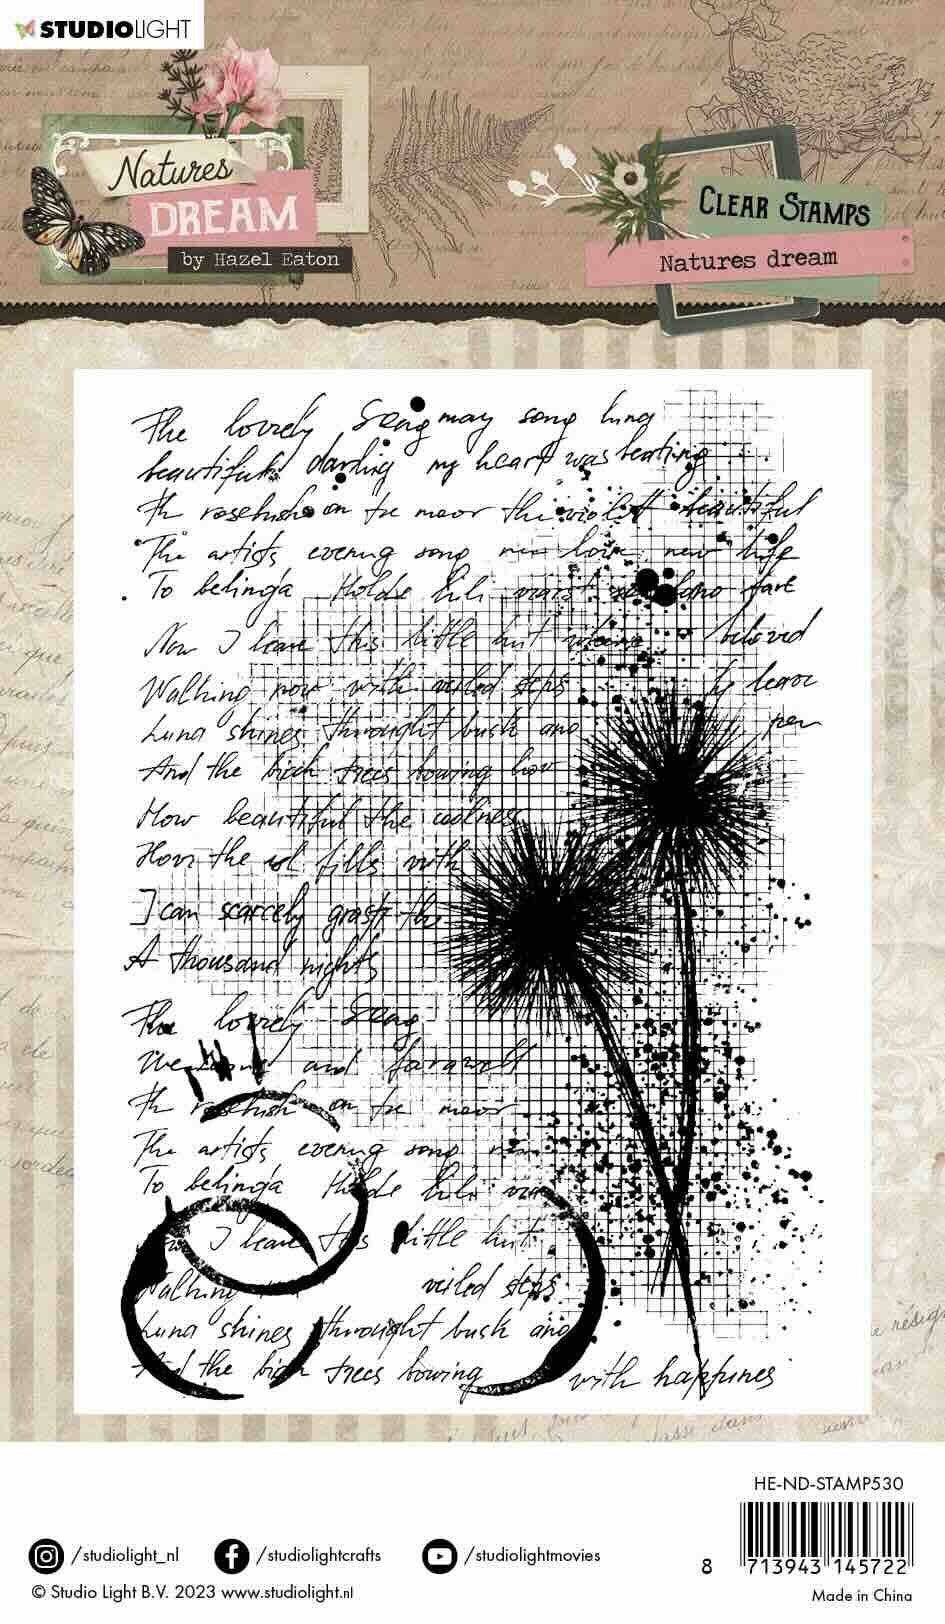 STUDIOLIGHT
Natures
DREAM
by Hazel Eaton
CLEAR STAMPS
Natures dream
The lovely Song may song lung
beautifull darling my heart was beating
Th rosebush on tre moor the violett beautiful
The artists evening song new life
To belinga Holde lili
Now I leave this little hut where beloved
Walking now with veiled steps leave
Luna shines throught bush and pen
And the birch trees bowing low
How beautiful the coolness
How the fills with
I can scarcely grasp the
A thousand nights
The lovely Song
and farewell
Th rosebush on tre moor
The artists evening song
To belinga Holde lili
I leave this little hut
Walking veiled steps
Luna shines throught bush and
And the birch trees bowing with happines
HE-ND-STAMP530
8 713943 145722
/studiolight_nl /studiolightcrafts /studiolightmovies
© Studio Light B.V. 2023 www.studiolight.nl
Made in China